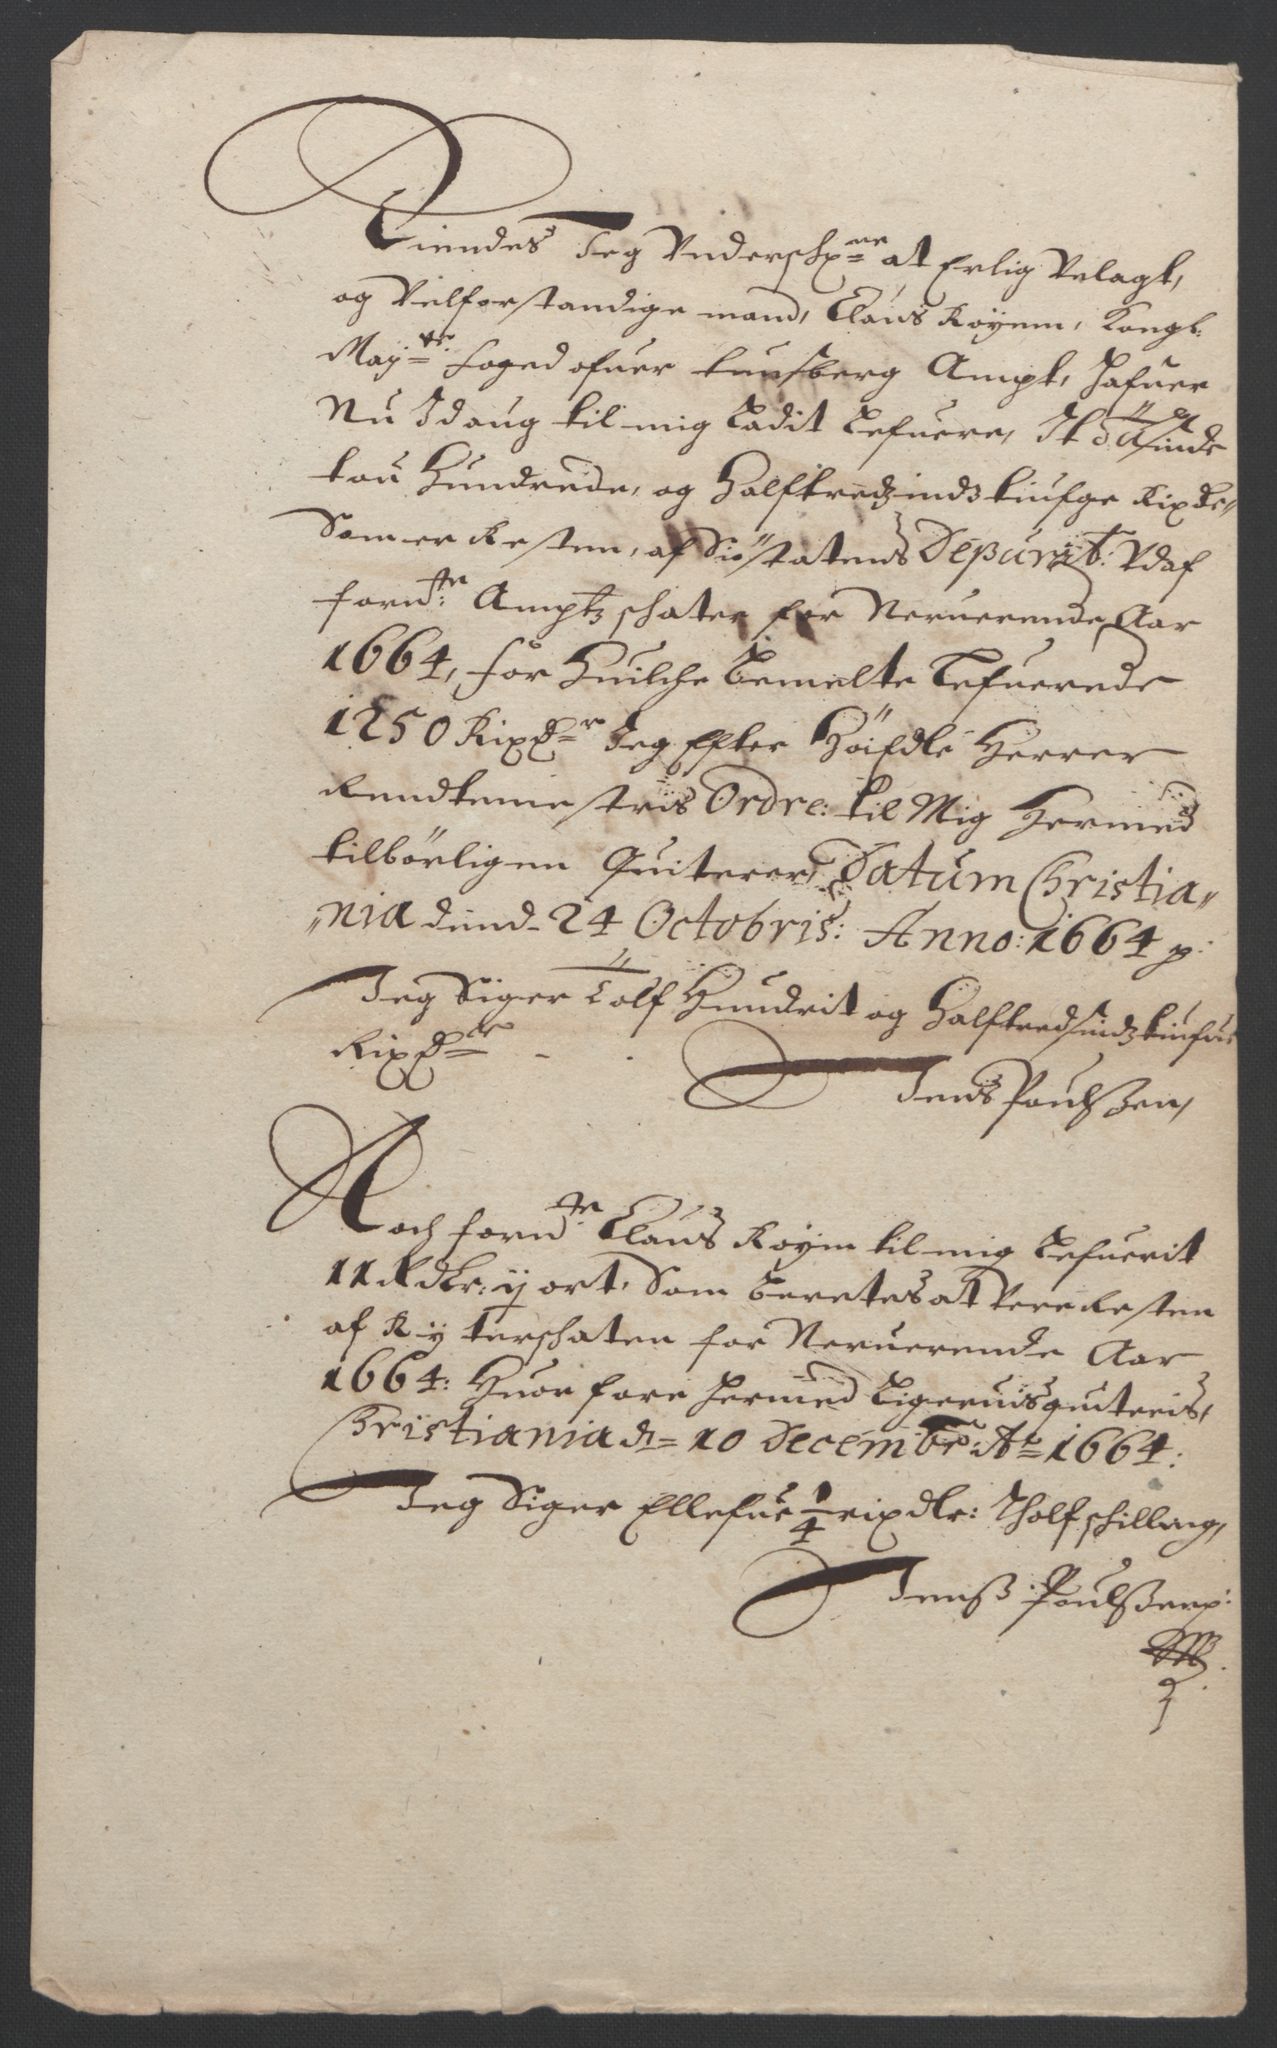 Kiendes Jeg Underschr ne at Erlig Velagt,
og Velforstandige mand, Claus Røyem, Kongl:
May: tz foged ofuer Tunsberg Ampt, hafuer
Nu Idaug til mig Ladit Lefuere, It Tusinde
tou Hundrede, og Halftredzindztiufge Rixdr,,
Som er Resten, af Siøstatens Deputit: Udaf
forn: te Amptz schater for Neruerende Aar
1664, for Huilche bemelte Lefuerede
1250 Rixdr Jeg Efter Høiædle Herrer
Rendtemestris Ordre: til Mig Hermed
tilbørligen Quiterer, Datum Christia,,
,,nia dend 24 Octobris: Anno: 1664 p:
Jeg Siger Tolf Hundrit og Halftredsindztiufue
Rixdr
Jens Poulsszen,
Noch forn te Claus Røyem til mig Lefuerit
11 Rdlr: ij ort, Som berettes at Vere Resten
af Ryterschaten for Neruerende Aar
1664: Huor fore hermed Ligeruis quiteris,
Christiania dn 10 Decembr: Ao 1664:
Jeg Siger Ellefue 1/4 rixdlr: Tholf schilling,
Jenss Poulsszen p: